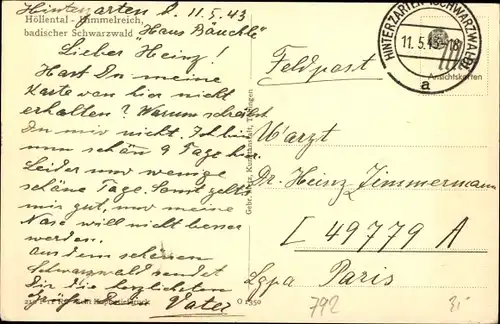 Hinterzarten d. 11.5.43
Höllental - Himmelreich, "Haus Bäuchle"
badischer Schwarzwald
Lieber Heinz!
Hast Du meine
Karte von hier nicht
erhalten? Warum schreibst
Du mir nicht. Ich bin
nun schon 9 Tage hier.
Leider nur wenige
schöne Tage. Sonst geht es
mir gut, nur meine
Nase will nicht besser
werden.
Aus dem schönen
Schwarzwald sendet
Dir die herzlichsten
Grüße Dein Vater
Gebr. Metz, Kunstanstalt, Tübingen
HINTERZARTEN (SCHWARZWALD)
11.5.43-18
a
Ansichtskarten
Feldpost
U'arzt
Dr. Heinz Zimmermann
L 49779 A
Lgpa Paris
792